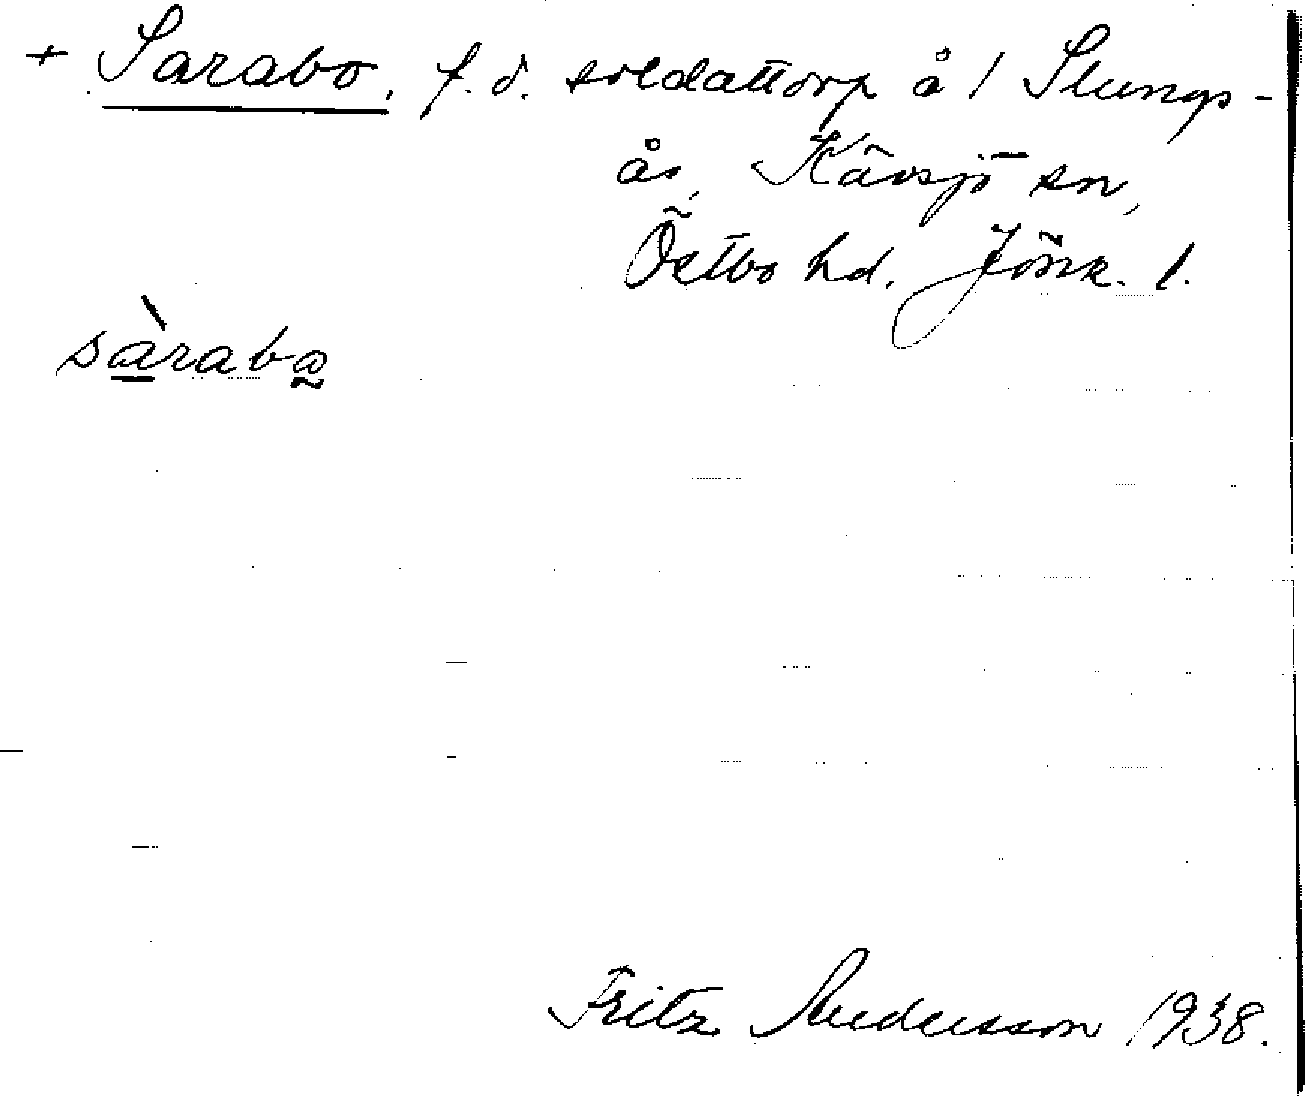 + Sarabo, f.d. soldattorp å 1 Slungs-
ås, Kävsjö sn,
Östbo hd. Jönk. l.
sàrabω
Fritz Andersson 1938.